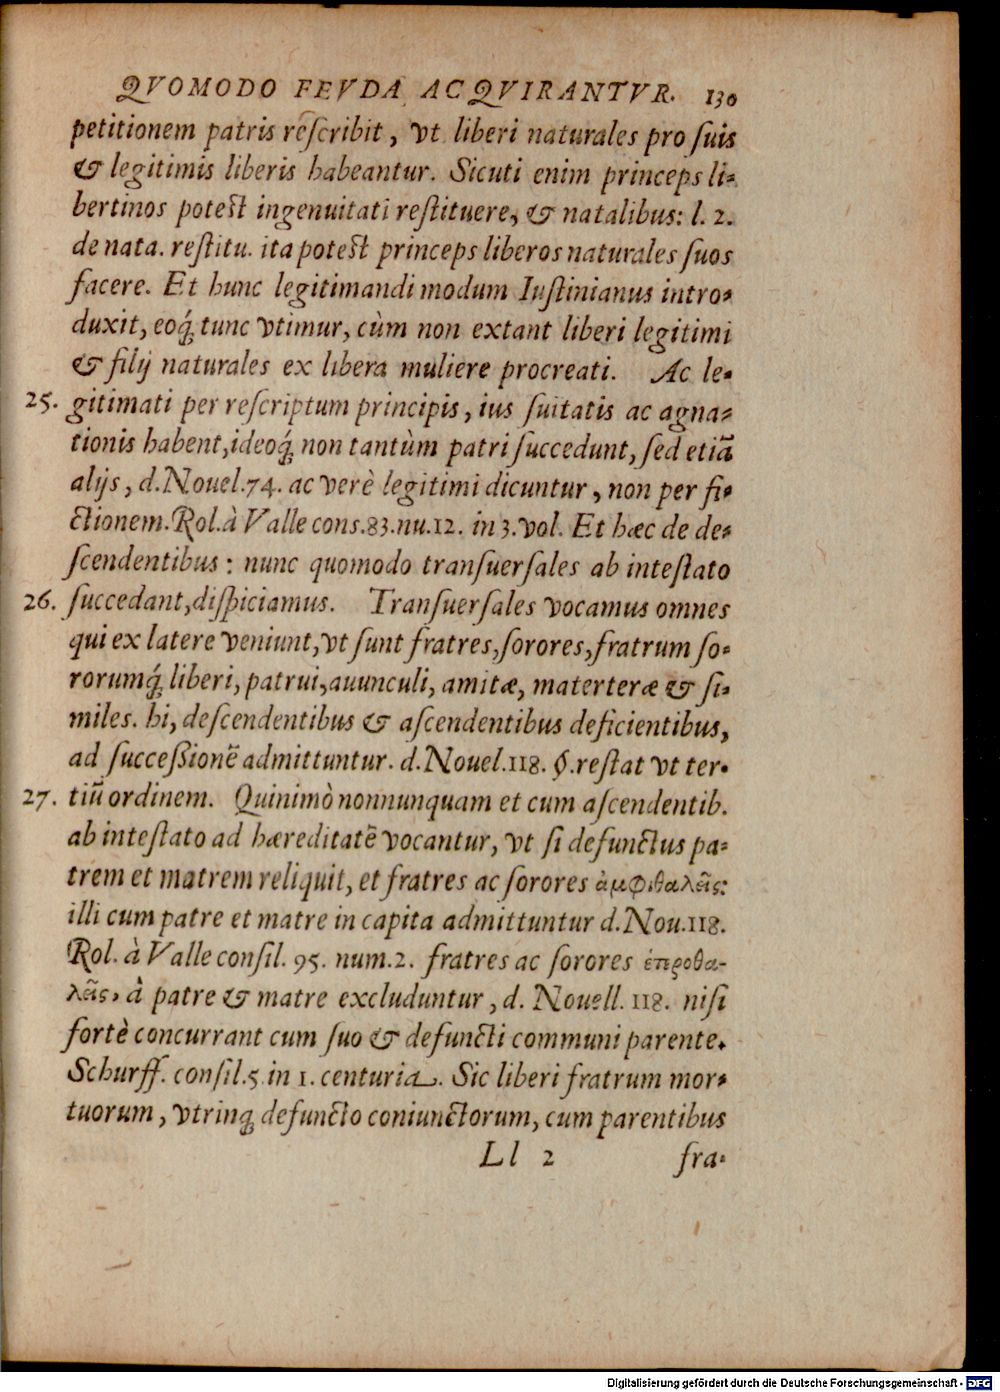 QVOMODO FEVDA ACQVIRANTVR. 130
petitionem patris rescribit, vt liberi naturales pro suis
& legitimis liberis habeantur. Sicuti enim princeps li-
bertinos potest ingenuitati restituere, & natalibus: l. 2.
de nata. restitu. ita potest princeps liberos naturales suos
facere. Et hunc legitimandi modum Iustinianus intro-
duxit, eoq́; tunc vtimur, cùm non extant liberi legitimi
& filij naturales ex libera muliere procreati. Ac le-
25. gitimati per rescriptum principis, ius suitatis ac agna-
tionis habent, ideoq́; non tantùm patri succedunt, sed etiā
alijs, d. Nouel. 74. ac verè legitimi dicuntur, non per fi-
ctionem. Rol. à Valle cons. 83. nu. 12. in 3. vol. Et hæc de de-
scendentibus: nunc quomodo transuersales ab intestato
26. succedant, dispiciamus. Transuersales vocamus omnes
qui ex latere veniunt, vt sunt fratres, sorores, fratrum so-
rorumq́; liberi, patrui, auunculi, amitæ, materteræ & si-
miles. hi, descendentibus & ascendentibus deficientibus,
ad successionē admittuntur. d. Nouel. 118. §. restat vt ter-
27. tiū ordinem. Quinimò nonnunquam et cum ascendentib.
ab intestato ad hæreditatē vocantur, vt si defunctus pa-
trem et matrem reliquit, et fratres ac sorores ἀμφιθαλεῖς:
illi cum patre et matre in capita admittuntur d. Nou. 118.
Rol. à Valle consil. 95. num. 2. fratres ac sorores ἑτεροθα-
λεῖς, à patre & matre excluduntur, d. Nouell. 118. nisi
fortè concurrant cum suo & defuncti communi parente.
Schurff. consil. 5 in 1. centuria. Sic liberi fratrum mor-
tuorum, vtrinq; defuncto coniunctorum, cum parentibus
Ll 2 fra-
Digitalisierung gefördert durch die Deutsche Forschungsgemeinschaft - DFG